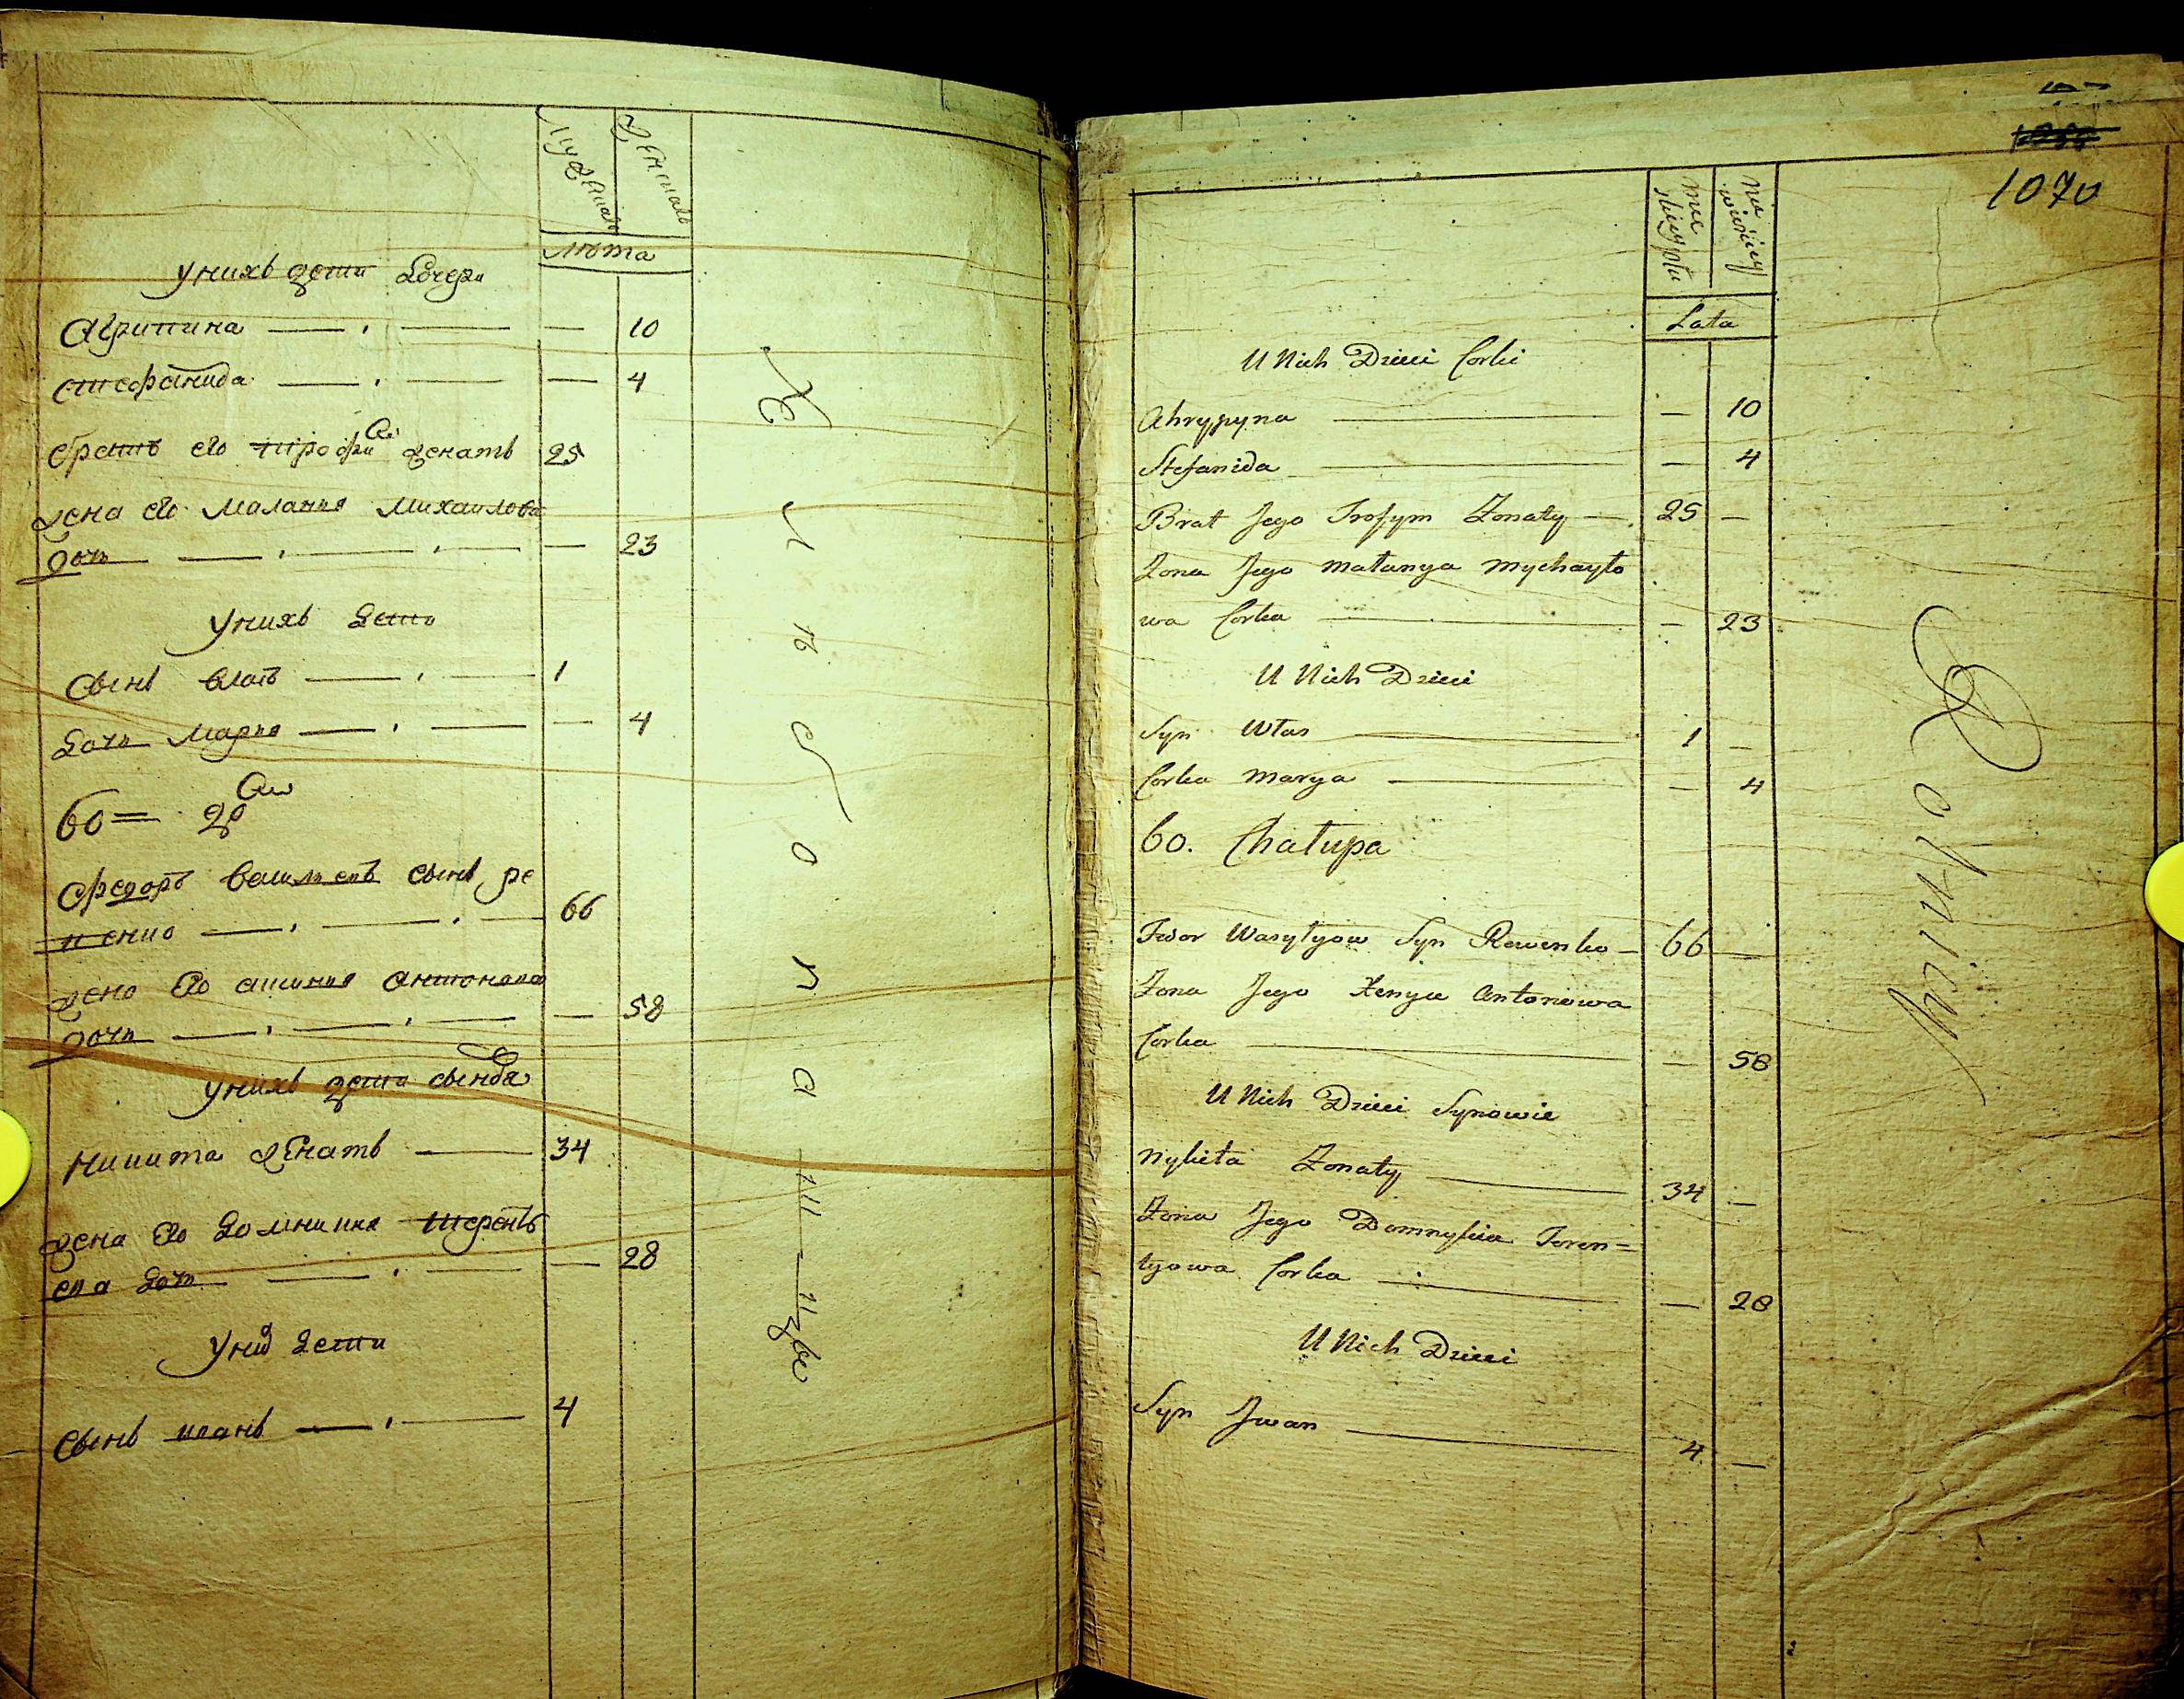 мужеска
женска
лѣта
У нихъ дети дочери
Агрипина — — — 10
стефанида — — — 4
братъ его трофи женатъ 25
жена его малания михаилова
дочь — — — — 23
У нихъ дети
сынъ власъ — — 1
дочь марья — — — 4
60 =
федоръ василиевъ сынъ ре
венко — — — 66
жена его антонова
дочь — — — — 58
У нихъ дети сынове
никита женатъ — 34
жена его домникия терентъ
ева дочь — — — 28
У них дети
сынъ иванъ — — 4
Хлѣбопашцы
1070
męskiey płci
Lata
U Nich Dzieci Corki
Ahrypyna — — 10
Stefanida — — 4
Brat Jego Trofym Żonaty — 25 —
Żona Jego Małanya Mychayło
wa Corka — — 23
U Nich Dzieci
Syn Włas — 1 —
Corka Marya — — 4
60. Chałupa
Fedor Wasylyow Syn Rewenko — 66 —
Żona Jego Xenya Antonowa
Corka — — 58
U Nich Dzieci Synowie
Nykita Żonaty — 34 —
Żona Jego Domnykia Teren=
tyowa Corka — — 28
U Nich Dzieci
Syn Jwan — 4 —
Rolnicy